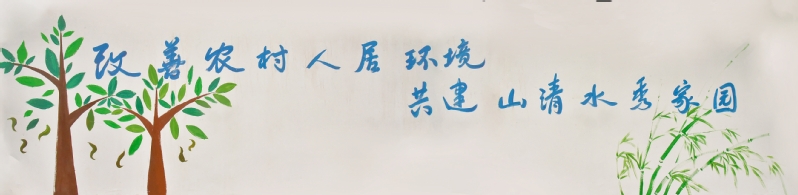 改善农村人居环境
共建山清水秀家园